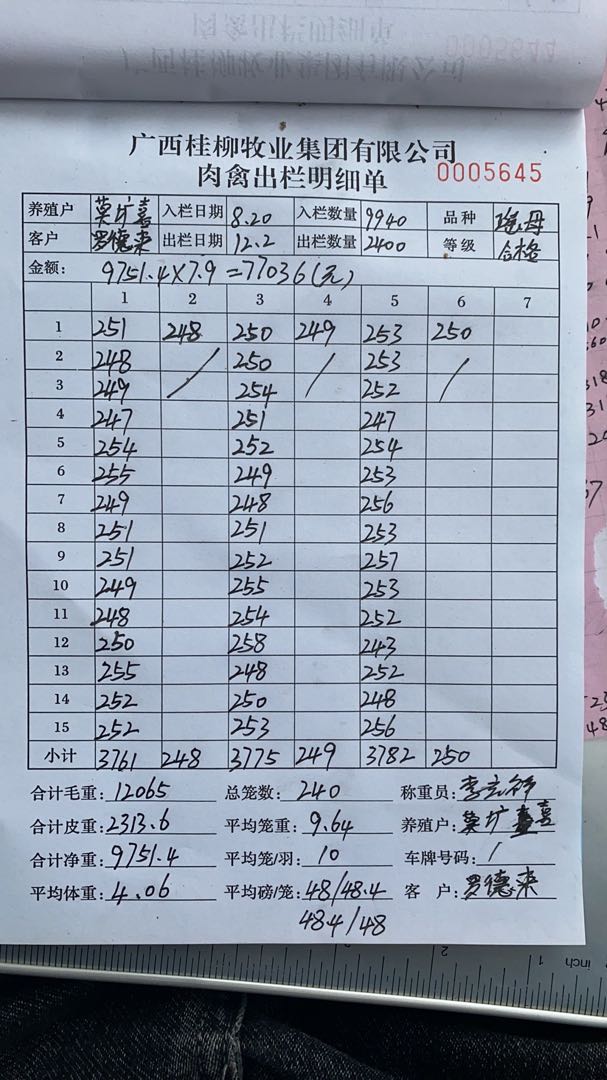 0005644
广西桂柳牧业集团有限公司
肉禽出栏明细单
0005645
养殖户 莫扩喜 入栏日期 8.20 入栏数量 9940 品种 瑶母
客户 罗德来 出栏日期 12.2 出栏数量 2400 等级 合格
金额: 9751.4×7.9=77036(元)
1 2 3 4 5 6 7
1 251 248 250 249 253 250
2 248 250 253
3 249 254 252
4 247 251 247
5 254 252 254
6 255 249 253
7 249 248 256
8 251 251 253
9 251 252 257
10 249 255 253
11 248 254 252
12 250 258 243
13 255 248 252
14 252 250 248
15 252 253 256
小计 3761 248 3775 249 3782 250
合计毛重: 12065 总笼数: 240 称重员:
合计皮重: 2313.6 平均笼重: 9.64 养殖户: 莫扩喜
合计净重: 9751.4 平均笼/羽: 10 车牌号码: /
平均体重: 4.06 平均磅/笼: 48/48.4 客户: 罗德来
48.4/48
inch